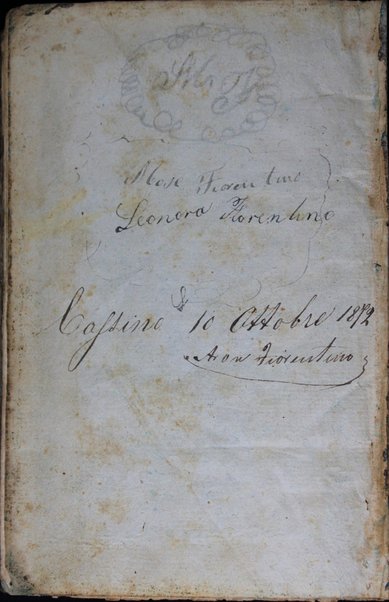 Mosè Fiorentino
Leonora Fiorentino
Cassino 10 Ottobre 1872
Aron Fiorentino